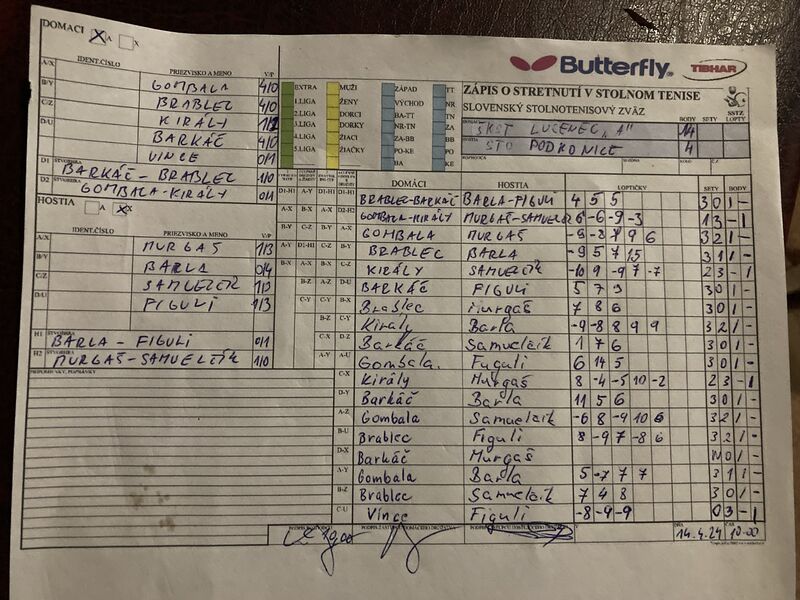 DOMACI X A X
IDENT.ČÍSLO PRIEZVISKO A MENO V/P
A/X GOMBALA 4/0
B/Y BRABLEC 4/0
C/Z KIRÁLY 1/2
D/U BARKÁČ 4/0
VINCE 0/1
D1 BARKÁČ - BRABLEC 1/0
D2 GOMBALA-KIRÁLY 0/1
HOSTIA A X X
IDENT.ČÍSLO PRIEZVISKO A MENO V/P
A/X MURGAŠ 1/3
B/Y BARLA 0/4
C/Z SAMUELČÍK 1/3
D/U FIGULI 1/3
H1 BARLA - FIGULI 0/1
H2 MURGAŠ-SAMUELČÍK 1/0
PRIPOMIENKY, POPRÁVKY
EXTRA MUŽI ZÁPAD TT
1.LIGA ŽENY VÝCHOD NR
2.LIGA DORCI BA-TT TN
3.LIGA DORKY NR-TN ZA
4.LIGA ŽIACI ZA-BB BB
5.LIGA ŽIAČKY PO-KE PO
BA KE
Butterfly TIBHAR
ZÁPIS O STRETNUTÍ V STOLNOM TENISE
SLOVENSKÝ STOLNOTENISOVÝ ZVÄZ
BODY SETY LOPTY
SKST LUČENEC "A" 14
STO PODKONICE 4
DOMÁCI HOSTIA LOPTIČKY SETY BODY
BRABLEC-BARKÁČ BARLA-FIGULI 4 5 5 3 0 1 -
GOMBALA-KIRÁLY MURGAŠ-SAMUELČÍK 6 -6 -9 -3 1 3 - 1
GOMBALA MURGAŠ -9 -8 7 9 6 3 2 1 -
BRABLEC BARLA -9 5 7 15 3 1 1 -
KIRÁLY SAMUELČÍK -10 9 -9 7 -7 2 3 - 1
BARKÁČ FIGULI 5 7 9 3 0 1 -
Brablec Murgaš 7 8 6 3 0 1 -
Király Barla -9 -8 8 9 9 3 2 1 -
Barkáč Samuelčík 1 7 6 3 0 1 -
Gombala. Figuli 6 14 5 3 0 1 -
C-X Király Murgaš 8 -4 -5 10 -2 2 3 - 1
D-Y Barkáč Barla 11 5 6 3 0 1 -
A-Z Gombala Samuelčík -6 8 -9 10 6 3 2 1 -
B-U Brablec Figuli 8 -9 7 -8 6 3 2 1 -
D-X Barkáč Murgaš W 0 1 -
A-Y Gombala Barla 5 -7 7 7 3 1 1 -
B-Z Brablec Samuelčík 7 4 8 3 0 1 -
C-U Vince Figuli -8 -9 -9 0 3 - 1
DŇA 14.4.24 ČAS 10:00